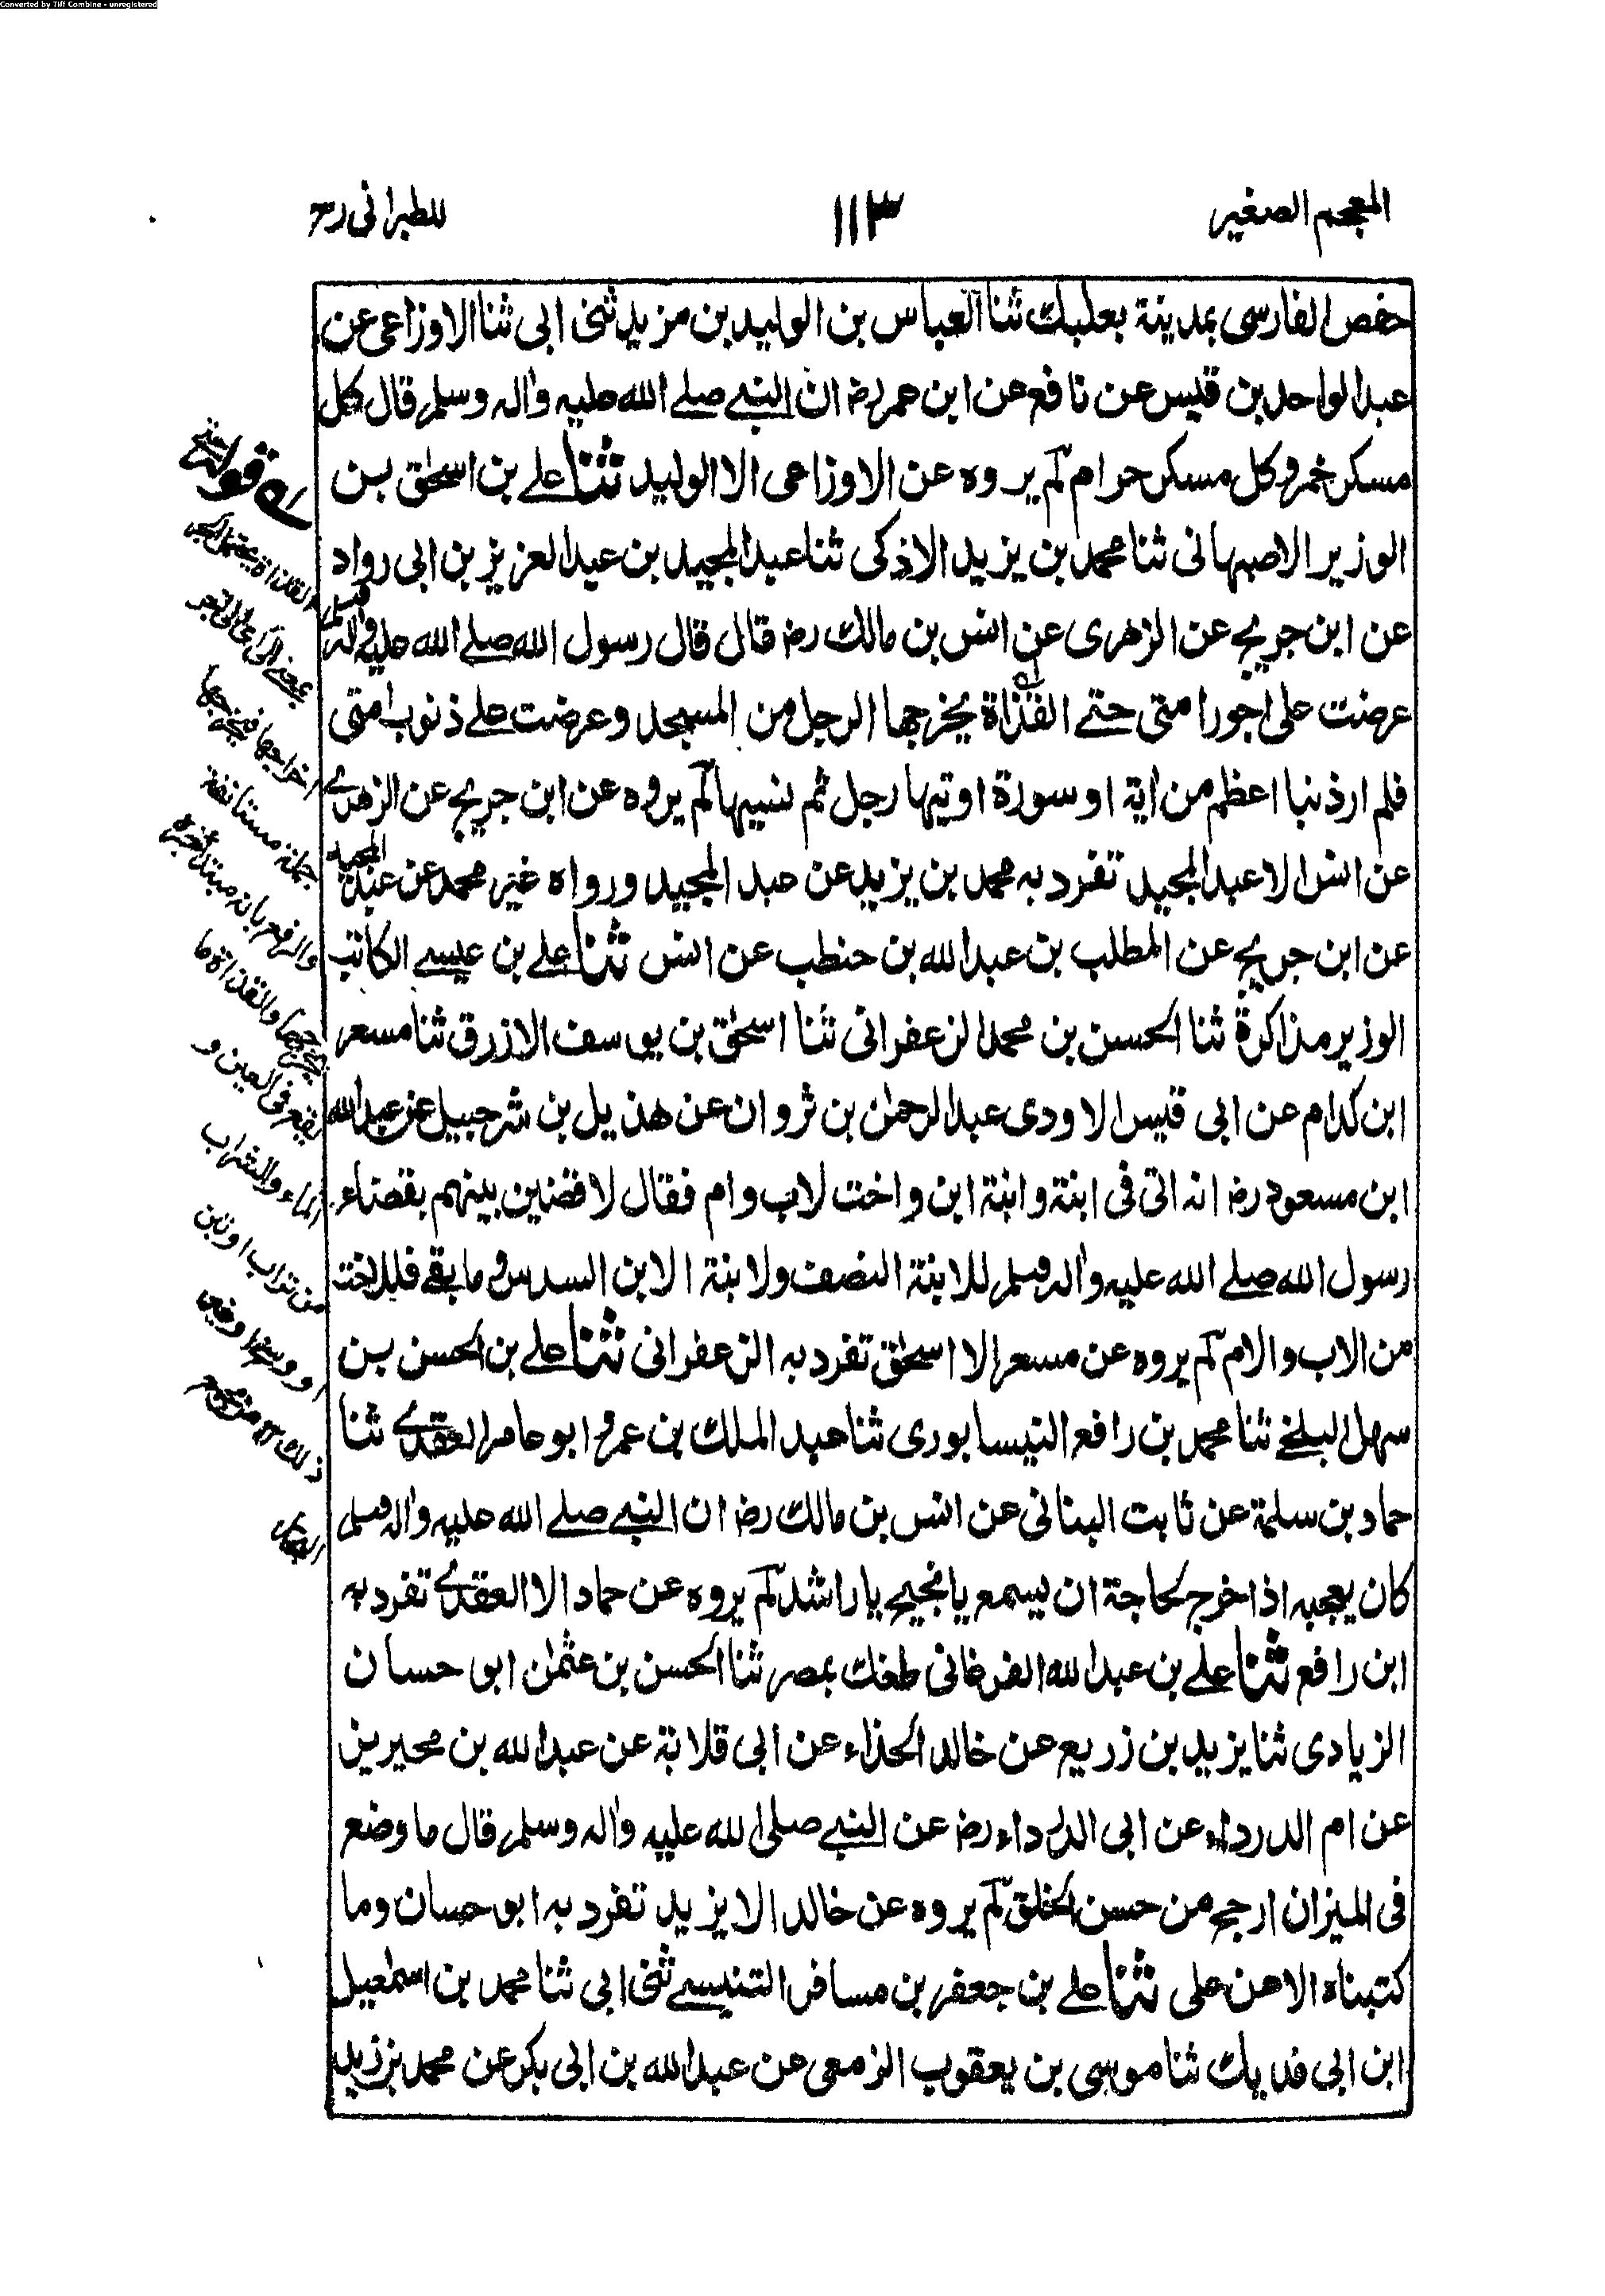 Converted by Tiff Combine - unregistered
المعجم الصغير
١١٣
للطبرانى رح
حفص الفارسى بمدينة بعلبك ثنا العباس بن الوليد بن مزيد ثنى ابى ثنا الاوزاعى عن
عبد الواحد بن قيس عن نافع عن ابن عمر رضـ ان النبے صلے الله عليه واٰله وسلم قال كل
مسكر خمر وكل مسكر حرام لم يروه عن الاوزاعى الا الوليد ثنا علے بن اسحٰق بن
الوزير الاصبهانى ثنا محمد بن يزيد الاذكى ثنا عبد المجيد بن عبد العزيز بن ابى رواد
عن ابن جريج عن الزهرى عن انس بن مالك رضـ قال قال رسول الله صلے الله عليه واٰله وسلم
عرضت على اجور امتى حتے القذاة يخرجها الرجل من المسجد وعرضت علے ذنوب امتى
فلم ار ذنبا اعظم من اٰية او سورة اوتيها رجل ثم نسيها لم يروه عن ابن جريج عن الزهرے
عن انس الا عبد المجيد تفرد به محمد بن يزيد عن عبد المجيد ورواه غير محمد عن عبد المجيد
عن ابن جريج عن المطلب بن عبد الله بن حنطب عن انس ثنا علے بن عيسے الكاتب
الوزير مذاكرة ثنا الحسن بن محمد الزعفرانى ثنا اسحٰق بن يوسف الازرق ثنا مسعر
ابن كدام عن ابى قيس الاودى عبد الرحمٰن بن ثروان عن هذيل بن شرحبيل عن عبد الله
ابن مسعود رضـ انه اتى فى ابنة وابنة ابن واخت لاب وام فقال لاقضين بينهم بقضاء
رسول الله صلے الله عليه واٰله وسلم للابنة النصف ولابنة الابن السدس وما بقے فللاخت
من الاب والام لم يروه عن مسعر الا اسحٰق تفرد به الزعفرانى ثنا علے بن الحسن بن
سهل البلخے ثنا محمد بن رافع النيسابورى ثنا عبد الملك بن عمرو ابو عامر العقدے ثنا
حماد بن سلمة عن ثابت البنانى عن انس بن مالك رضـ ان النبے صلے الله عليه واٰله وسلم
كان يعجبه اذا خرج لحاجة ان يسمع يا نجيح يا راشد لم يروه عن حماد الا العقدے تفرد به
ابن رافع ثنا علے بن عبد الله الفرغانى طغك بمصر ثنا الحسن بن عثمٰن ابو حسان
الزيادى ثنا يزيد بن زريع عن خالد الحذاء عن ابى قلابة عن عبد الله بن محيريز
عن ام الدرداء عن ابى الدرداء رضـ عن النبے صلى الله عليه واٰله وسلم قال ما وضع
فى الميزان ارجح من حسن الخلق لم يروه عن خالد الا يزيد تفرد به ابو حسان وما
كتبناه الا عن على ثنا علے بن جعفر بن مسافر التنيسے ثنى ابى ثنا محمد بن اسمٰعيل
ابن ابى فديك ثنا موسى بن يعقوب الزمعى عن عبد الله بن ابى بكر عن محمد بن زيد
قوله حتے
اخراجها
جملة مستانفة
يخرجها والقذاة ما
يقع فى العين و
الماء والشراب
من تراب او تبن
او وسخ او غير
ذلك